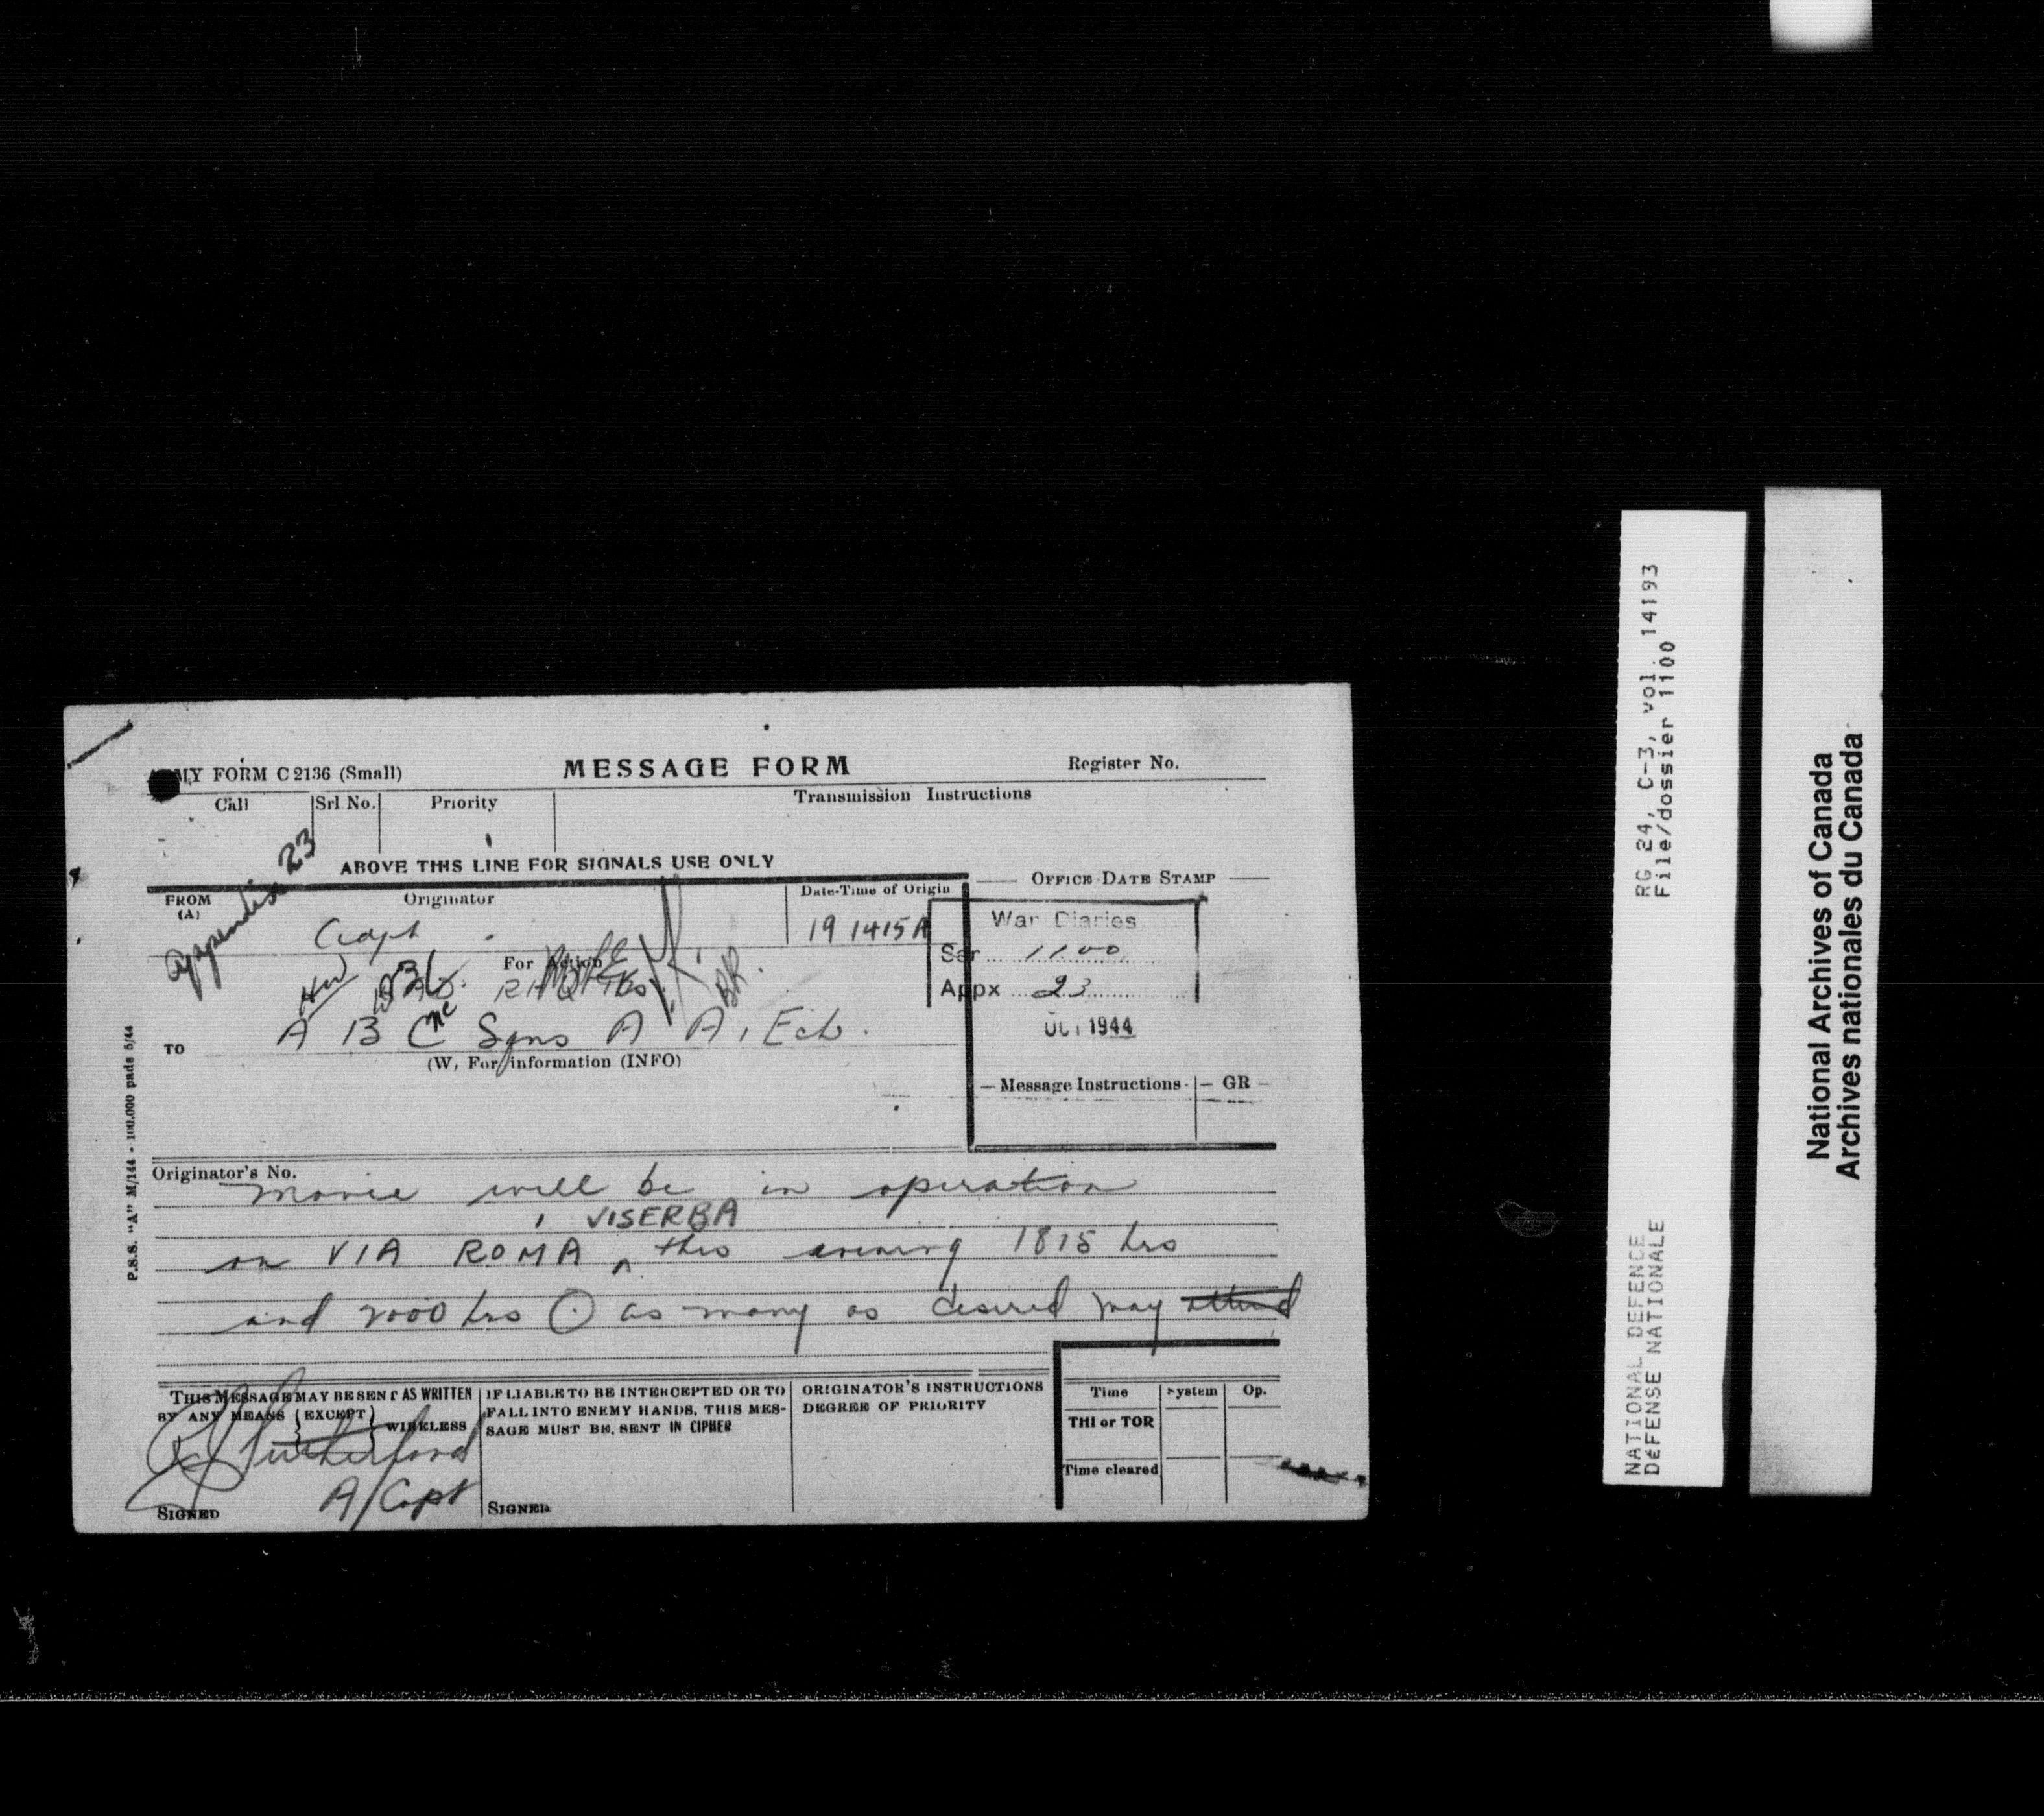 ARMY FORM C2136 (Small)
MESSAGE FORM
Register No.
Call
Srl No.
Priority
Transmission Instructions
Appendix 23
ABOVE THIS LINE FOR SIGNALS USE ONLY
OFFICE DATE STAMP
FROM
(A)
Originator
Date-Time of Origin
19 1415A
War Diaries
Ser 1100
Appx 23
OCT 1944
For Action
RHQ
TO
A B C Sqns A A, Ech.
(W) For information (INFO)
Message Instructions
GR
Originator's No.
Movie will be in operation
VISERBA
on VIA ROMA ^ this evening 1815 hrs
and 2000 hrs ⊙ as many as desired may attend
THIS MESSAGE MAY BE SENT AS WRITTEN
BY ANY MEANS (EXCEPT) WIRELESS
Rutherford
A/Capt
SIGNED
IF LIABLE TO BE INTERCEPTED OR TO
FALL INTO ENEMY HANDS, THIS MES-
SAGE MUST BE SENT IN CIPHER
SIGNED
ORIGINATOR'S INSTRUCTIONS
DEGREE OF PRIORITY
Time
System
Op.
THI or TOR
Time cleared
P.S.S. "A" M/144 - 100.000 pads 5/44
RG 24, C-3, vol. 14193
File/dossier 1100
NATIONAL DEFENCE
DéFENSE NATIONALE
National Archives of Canada
Archives nationales du Canada